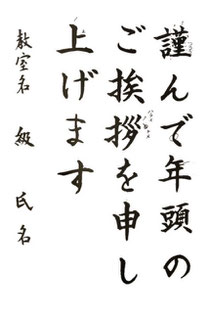 謹んで年頭の
ご挨拶を申し
上げます
教室名 級 氏名